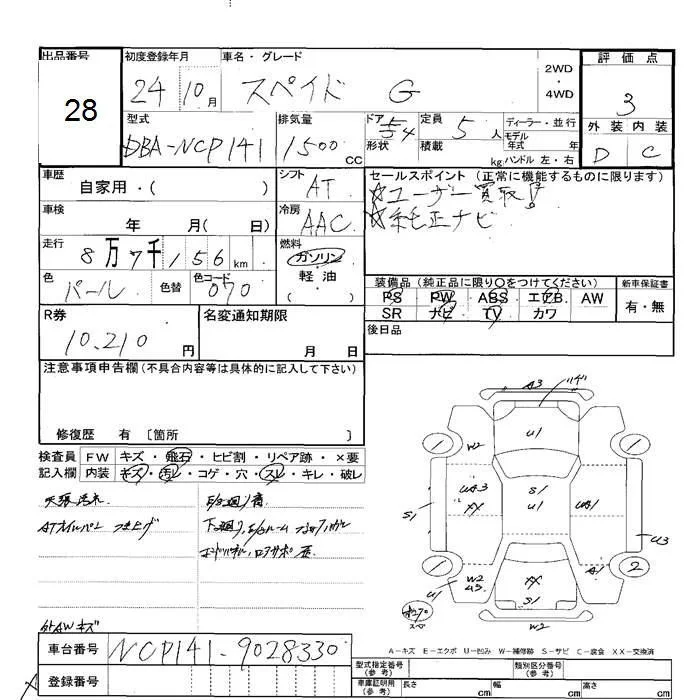 出品番号 初度登録年月 車名・グレード 評価点
28 24 10月 スペイド G 2WD・4WD 3
型式 排気量 ドア形状 定員 ディーラー・並行 外装 内装
DBA-NCP141 1500cc 5人 積載 kg モデル年式 年 ハンドル 左・右 D C
車歴 自家用・( ) シフト AT セールスポイント (正常に機能するものに限ります)
☆ユーザー買取!
車検 年 月( 日) 冷房 AAC ☆純正ナビ
走行 8万7千156km 燃料 ガソリン・軽油 ( )
色 パール 色替 色コード 070
装備品 (純正品に限り○をつけてください) 新車保証書
PS PW ABS エアB AW 有・無
SR ナビ TV カワ
R券 10,210円 名変通知期限 月 日 後日品
注意事項申告欄 (不具合内容等は具体的に記入して下さい)
修復歴 有 [箇所 ]
検査員 FW キズ・飛石・ヒビ割・リペア跡・×要
記入欄 内装 キズ・汚レ・コゲ・穴・スレ・キレ・破レ
ATオイルパン
外AWキズ
A3
U1
W2
UA3
XX
S1
U1
UA1
S1
U3
A1
W2
U3
U1
XX
S1
W2
2
スペ
A-キズ E-エクボ U-凹み W-補修跡 S-サビ C-腐食 XX-交換済
車台番号 NCP141-9028330
登録番号
型式指定番号 (参考) 類別区分番号 (参考)
車庫証明用 (参考) 長さ cm 幅 cm 高さ cm